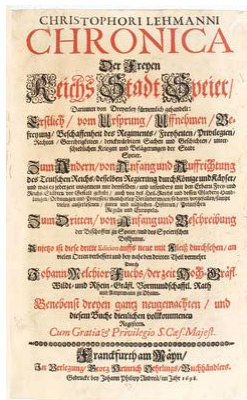 CHRISTOPHORI LEHMANNI
CHRONICA
Der Freyen
Reichs Stadt Speier/
Darinnen von Dreyerley fürnemlich gehandelt:
Erstlich / vom Ursprung / Uffnehmen / Be-
freyung / Beschaffenheit des Regiments / Freyheiten / Privilegien /
Speier.
Zum Andern / von Anfang und Auffrichtung
des Teutschen Reichs / desselben Regierung durch Könige und Käyser /
Zum Dritten / von Anfang und Beschreibung
der Bischoffen zu Speier / und des Speyerischen
Bisthumbs.
Anjetzo ist diese dritte Edition auffs neue mit Fleiß durchsehen / an
vielen Orten verbessert und den nahe den dritten Theil vermehrt
Durch
Johann Melchior Fuchs / der zeit Hoch-Gräfl.
Wild- und Rhein-Gräfl. Vormundschafftl. Rath
Benebenst dreyen gantz neugemachten / und
diesem Buche dienlichen vollkommenen
Registern.
Cum Gratia & Privilegio S. Cæs. Majest.
Franckfurth am Mäyn /
In Verlegung / Georg Heinrich Oehrlings / Buchhändlers.
Gedruckt bey Johann Philipp Andreä / im Jahr 1698.